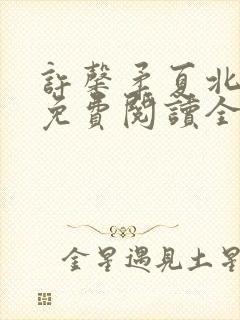 許馨矛夏北
免費閱讀全
金星遇見土星